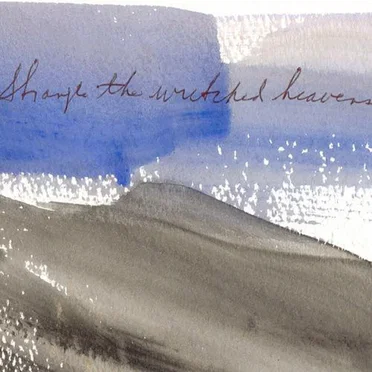 Strangle the wretched heavens